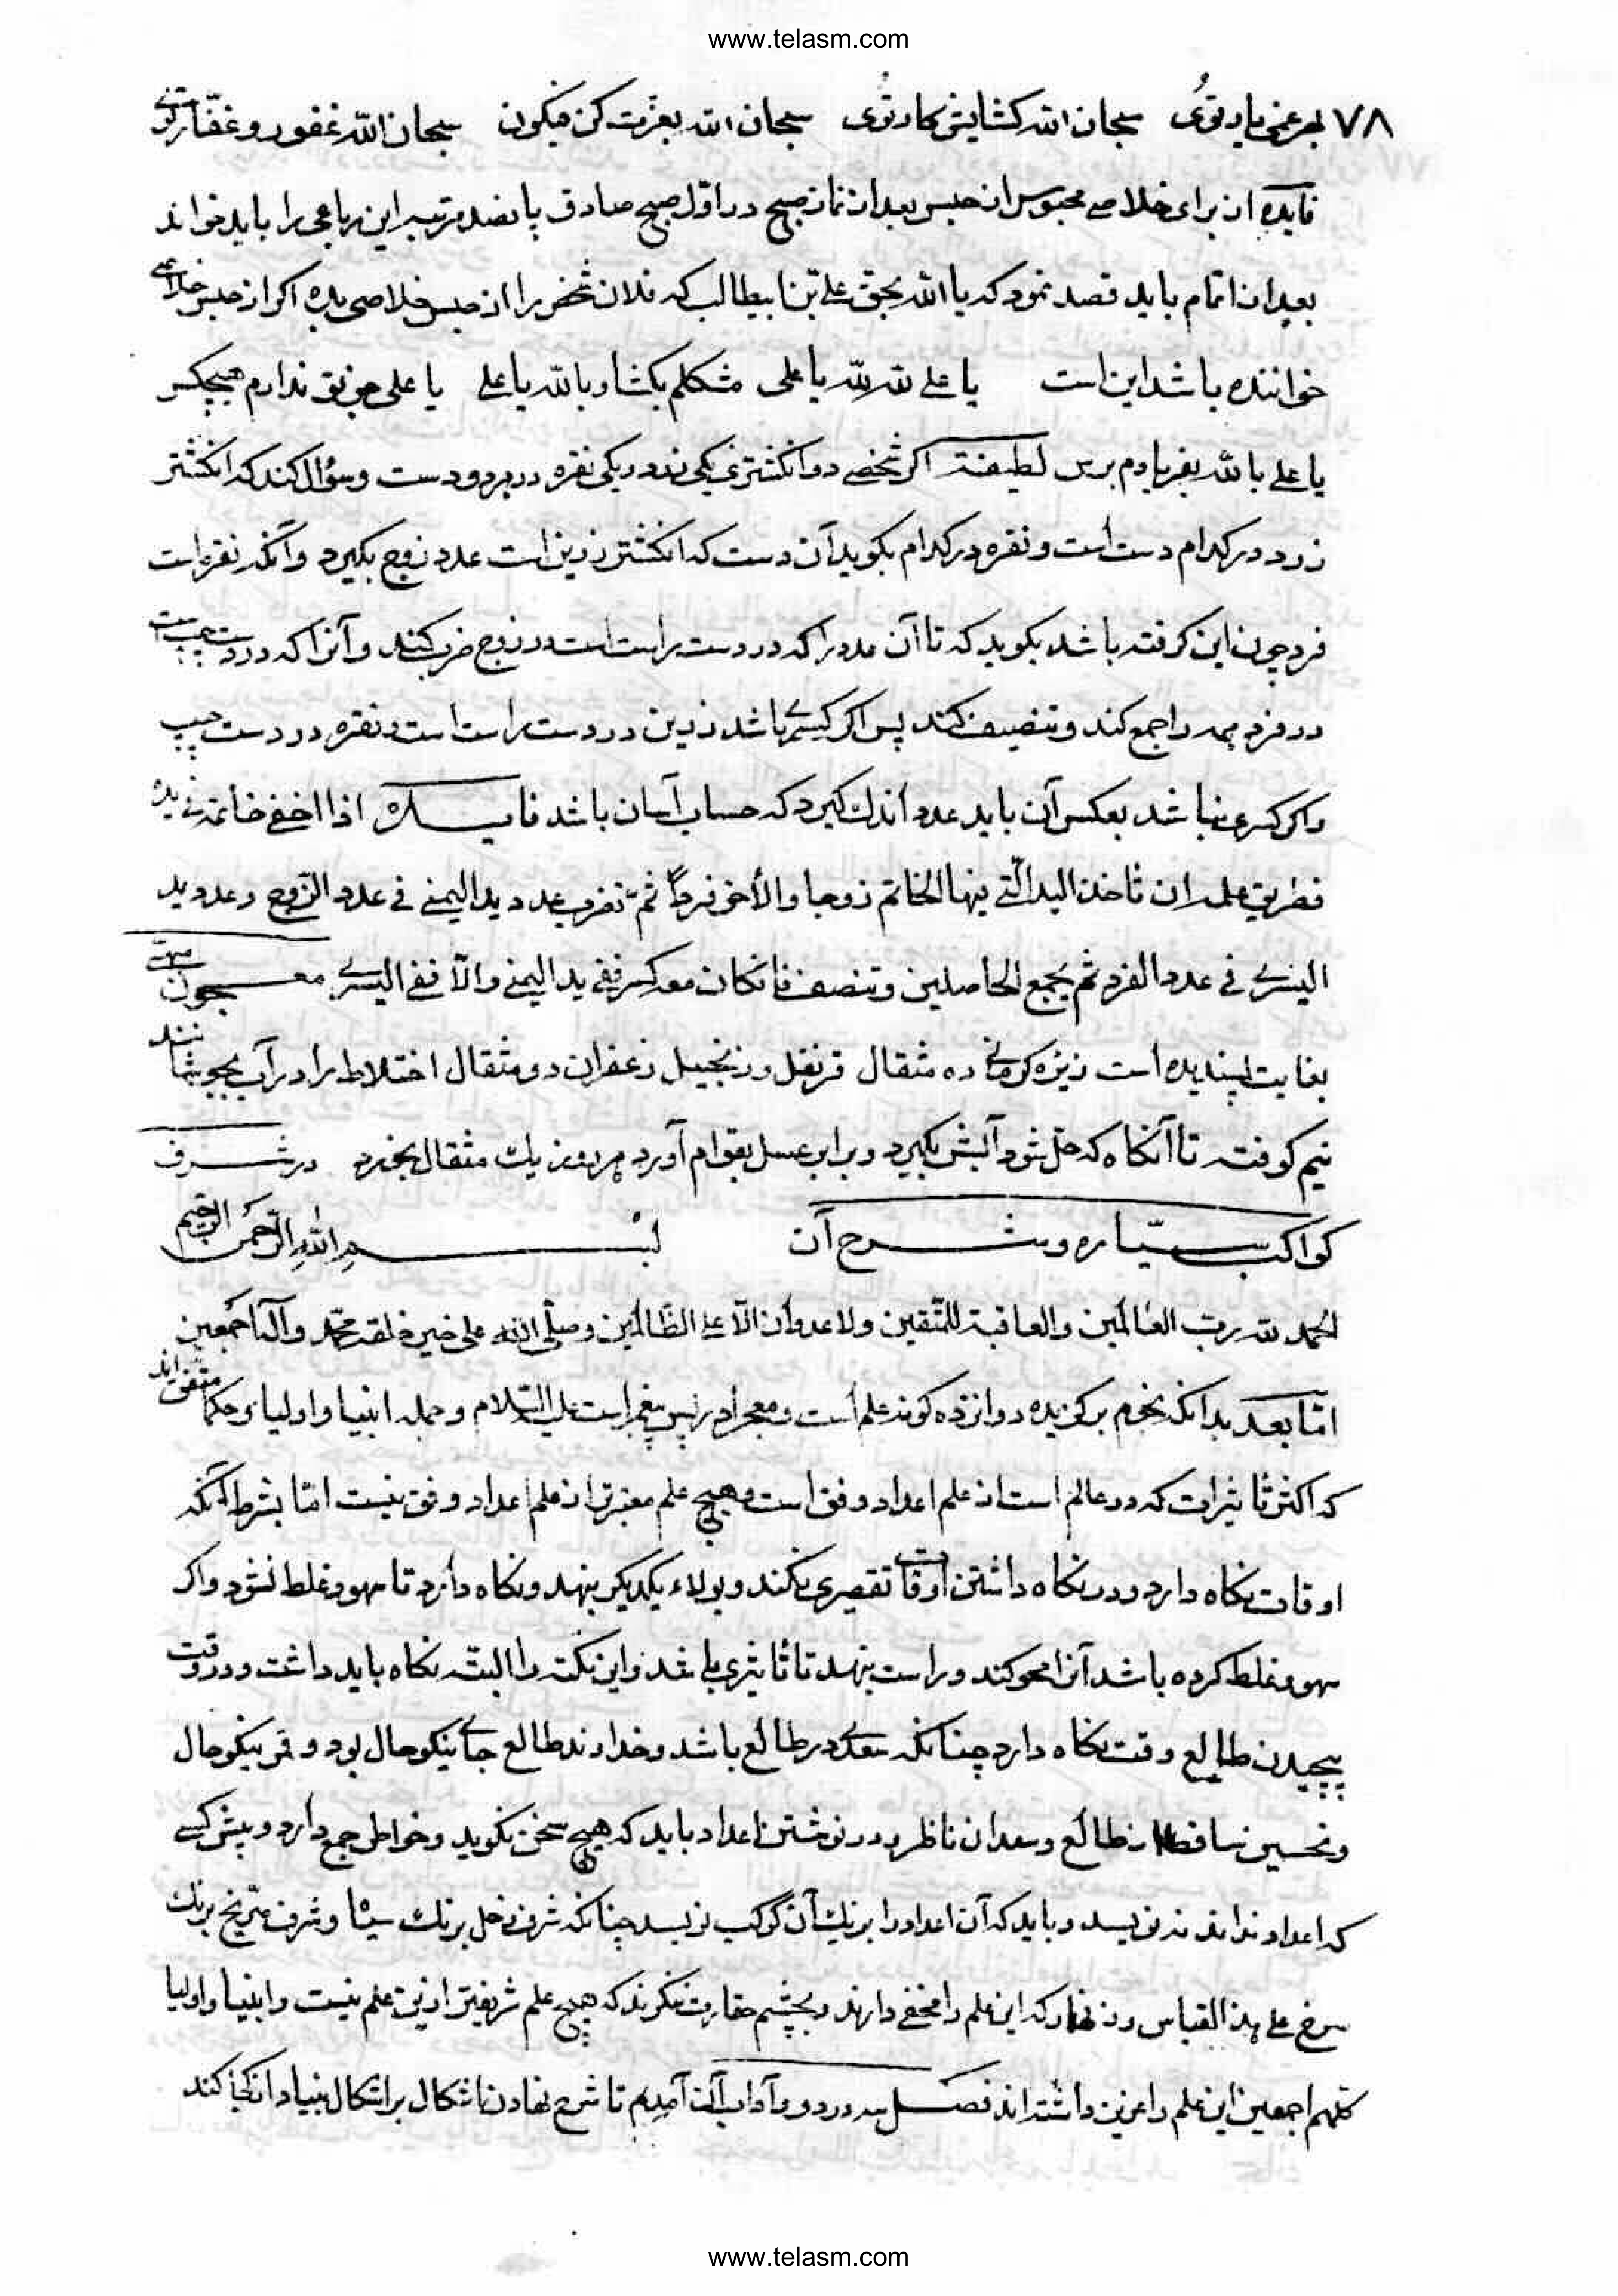 www.telasm.com
۷۸ بهر غمی یار توئی سبحان الله کشایش کار توئی سبحان الله بعزمت کن فیکون سبحان الله غفور و غفار توئی
فایده از برای خلاصی محبوس از حبس بعد از نماز صبح در اول صبح صادق پانصد مرتبه این رباعی را باید خواند
بعد از اتمام باید قصد نمود که یا الله بحق علی بن ابیطالب که فلان شخص را از حبس خلاصی بده اکر از حبس خلاصی
خواننده باشد این است یا علی لله لله یا علی مشکلم بکشا و بالله یا علی یا علی جز تو ندارم هیچکس
یا علی بالله بفریادم برس لطیفة اکر شخصی دو انکشتری یکی زرد و یکی نقره در هر دو دست و سؤال کند که انکشتر
زرد در کدام دست است و نقره در کدام بکوید آن دست که انکشتر زرین است عدد زوج بکیرد و آنکه نقره است
فرد چون این کرفته باشد بکوید که تا آن عدد را که در دست راست است در زوج ضرب کند و آنرا که در دست چپ است
در فرد همه را جمع کند و تنصیف کند پس اکر کسری باشد زرین در دست راست است و نقره در دست چپ
و اکر کسری نباشد بعکس آن باید عدد اندک کیرد که حساب آسان باشد فایده اذا اخفی خاتمه فی یده
فطریق علمه ان تاخذ الید الّتی فیها الخاتم زوجا والأخر فرداً ثمّ تضرب عدد ید الیمنی فی عدد الزّوج و عدد ید
الیسری فی عدد الفرد ثم یجمع الحاصلین و تنصف فانکان معه کسر ففی ید الیمنی والّا ففی الیسری معجون
بغایت پسندیده است زیره کرمانی ده مثقال قرنفل و زنجبیل زعفران دو مثقال اختلاط را در آب بجوشانند
نیم کوفته تا آنکاه که حل شود آبش بکیرد و برابر عسل بقوام آورد هر روز یک مثقال بخورد در شرف
کواکب سیّاره و شرح آن بسم الله الرّحمن الرّحیم
الحمد لله رب العالمین والعاقبة للمتّقین ولا عدوان الّا علی الظّالمین وصلّی الله علی خیر خلقه محمّد وآله اجمعین
امّا بعد بدانکه نجوم برکزیده دوانزده کونه علم است و معجز ادریس پیغمبر است علیه السّلام و جمله انبیا و اولیا و حکما متفق اند
که اکثر تاثیرات که در عالم است از علم اعداد وفق است و هیچ علم معتبرتر از علم اعداد وفق نیست امّا بشرط آنکه
اوقات نکاه دارد و در نکاه داشتن اوقات تقصیری نکند و بولاء یکدیکر بنهد و نکاه دارد تا سهو و غلط نشود و اکر
سهو و غلط کرده باشد آنرا محو کند و راست بنهد تا تاثیری باشد و این نکته را البتّه نکاه باید داشت و در وقت
پیچیدن طالع وقت نکاه دارد چنانکه سعدی در طالع باشد و خداوند طالع جای نیکو حال بود و قمر نیکو حال
و نحسین ساقط از طالع و سعدان ناظر و در نوشتن اعداد باید که هیچ سخن نکوید و خواطر جمع دارد و پیش کسی
که اعداد نداند ننویسد و باید که آن اعداد را برنک آن کوکب نویسد چنانکه شرف زحل برنک سیاه و شرف مرّیخ برنک
سرخ علی هذا القیاس و زنهار که این علم را مخفی دارند و بچشم حقارت ننکرند که هیچ علم شریفتر ازین علم نیست و انبیا و اولیا
کلهم اجمعین این علم را عزیز داشته اند فصل در و آداب آن آمدیم تا شرح نهادن اشکال بر اشکال بنیاد از کجا کند
www.telasm.com